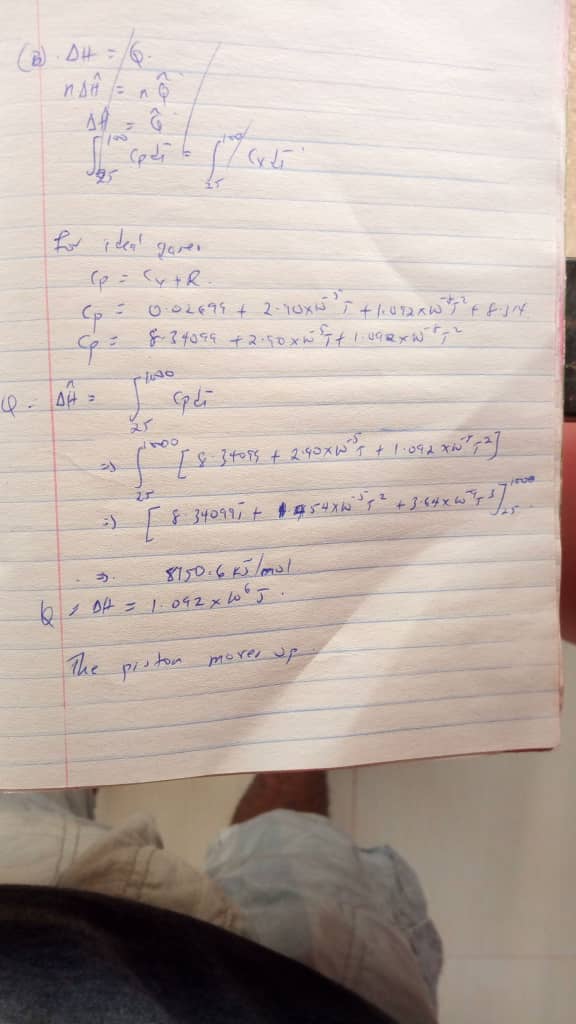 (B). ΔH = Q.
nΔĤ = nQ̂
ΔĤ = Q̂
∫₂₅¹⁰⁰ Cpdt = ∫₂₅¹⁰⁰ Cvdt
For ideal gases
Cp = Cv + R.
Cp = 0.02699 + 2.90x10⁻⁵T + 1.092x10⁻⁸T² + 8.314
Cp = 8.34099 + 2.90x10⁻⁵T + 1.092x10⁻⁸T²
Q = ΔĤ = ∫₂₅¹⁰⁰⁰ Cpdt
⇒ ∫₂₅¹⁰⁰⁰ [8.34099 + 2.90x10⁻⁵T + 1.092x10⁻⁸T²]
⇒ [8.34099T + 54x10⁻⁵T² + 3.64x10⁻⁹T³]₂₅¹⁰⁰⁰
⇒ 8150.6 KJ/mol
Q = ΔH = 1.092x10⁶J.
The piston moves up.